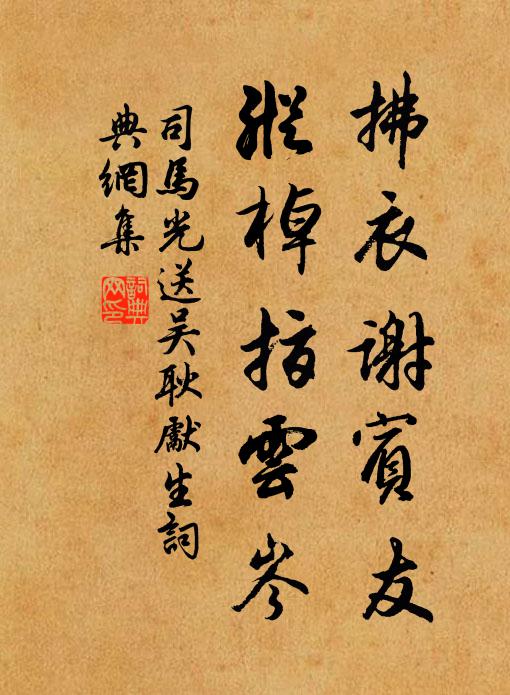 拂衣謝賓友
縱棹指雲岑
司馬光送吴耿獻生詞
典網集
詞典
网印